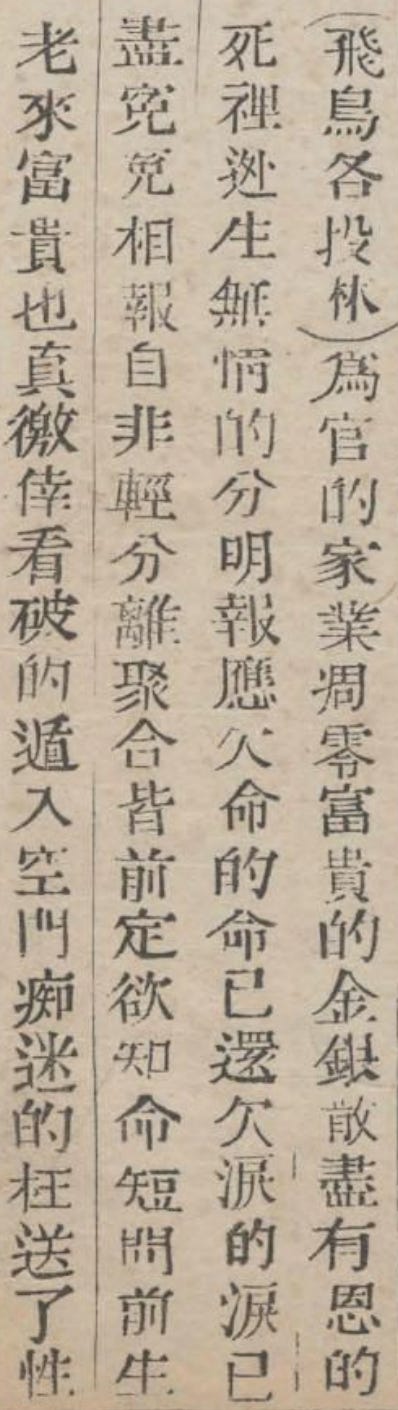 （飛鳥各投林）爲官的家業凋零富貴的金銀散盡有恩的
死裡逃生無情的分明報應欠命的命已還欠淚的淚已
盡寃寃相報自非輕分離聚合皆前定欲知命短問前生
老來富貴也真徼倖看破的遁入空門痴迷的枉送了性